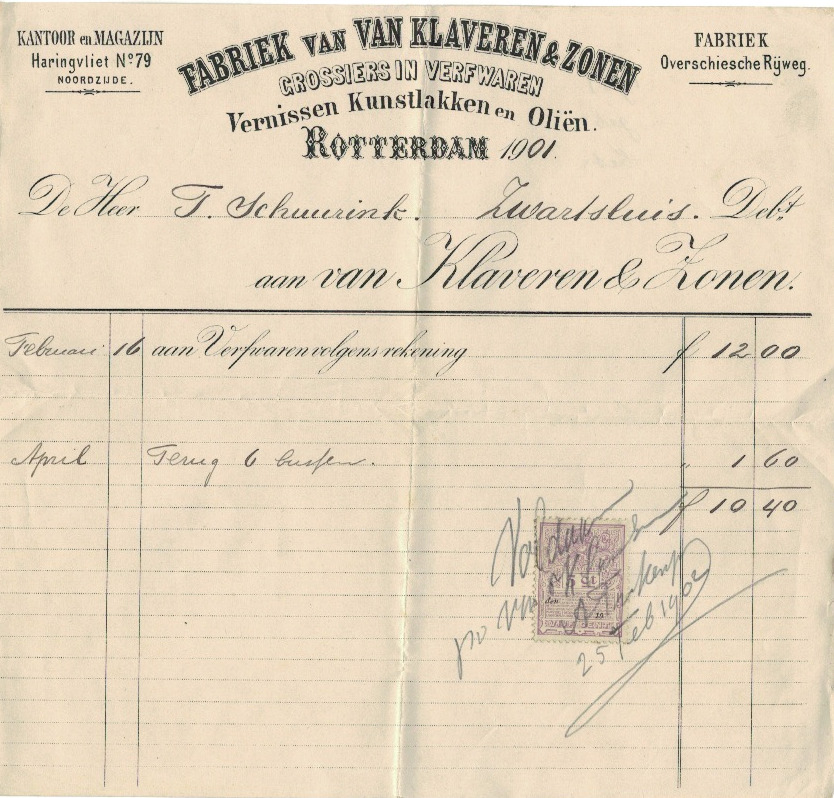 KANTOOR en MAGAZIJN
Haringvliet No 79
NOORDZIJDE.
FABRIEK VAN VAN KLAVEREN & ZONEN
GROSSIERS IN VERFWAREN
Vernissen Kunstlakken en Oliën.
ROTTERDAM 1901.
FABRIEK
Overschiesche Rijweg.
De Heer T. Schuurink. Zwartsluis. Debt
aan van Klaveren & Zonen.
Februari 16 aan Verfwaren volgens rekening f 12 00
April Terug 6 bussen. " 1 60
f 10 40
Voldaan
5 Ct
pro
25 Feb 1902